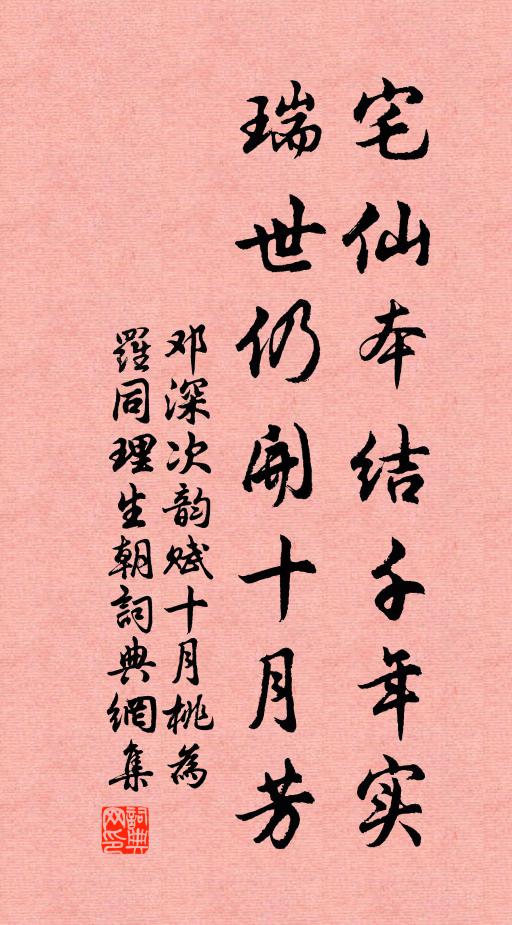 宅仙本结千年实
瑞世仍開十月芳
邓深次韵赋十月桃為
羅同理生朝詞典網集
詞典网印